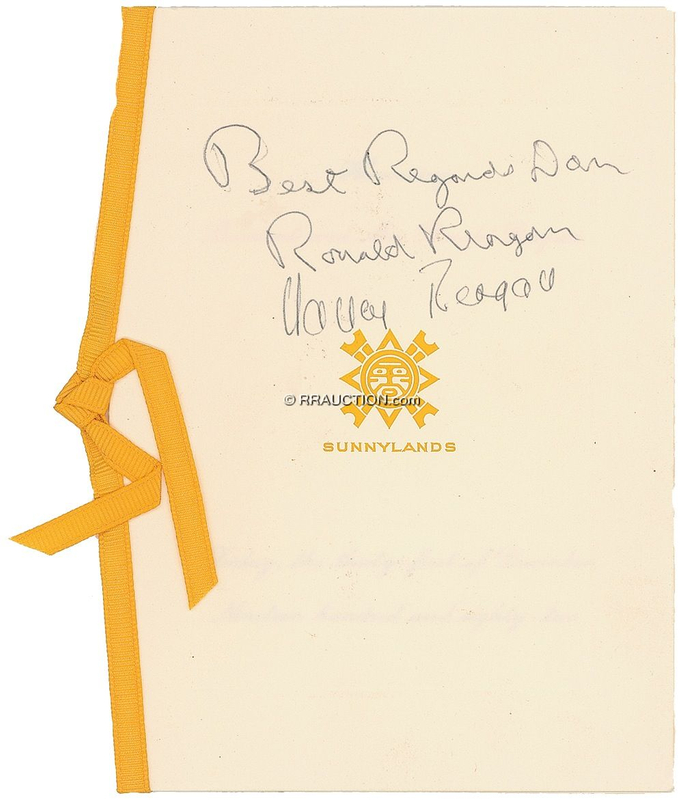 Best Regards Dan
Ronald Reagan
Nancy Reagan
© RRAUCTION.com
SUNNYLANDS